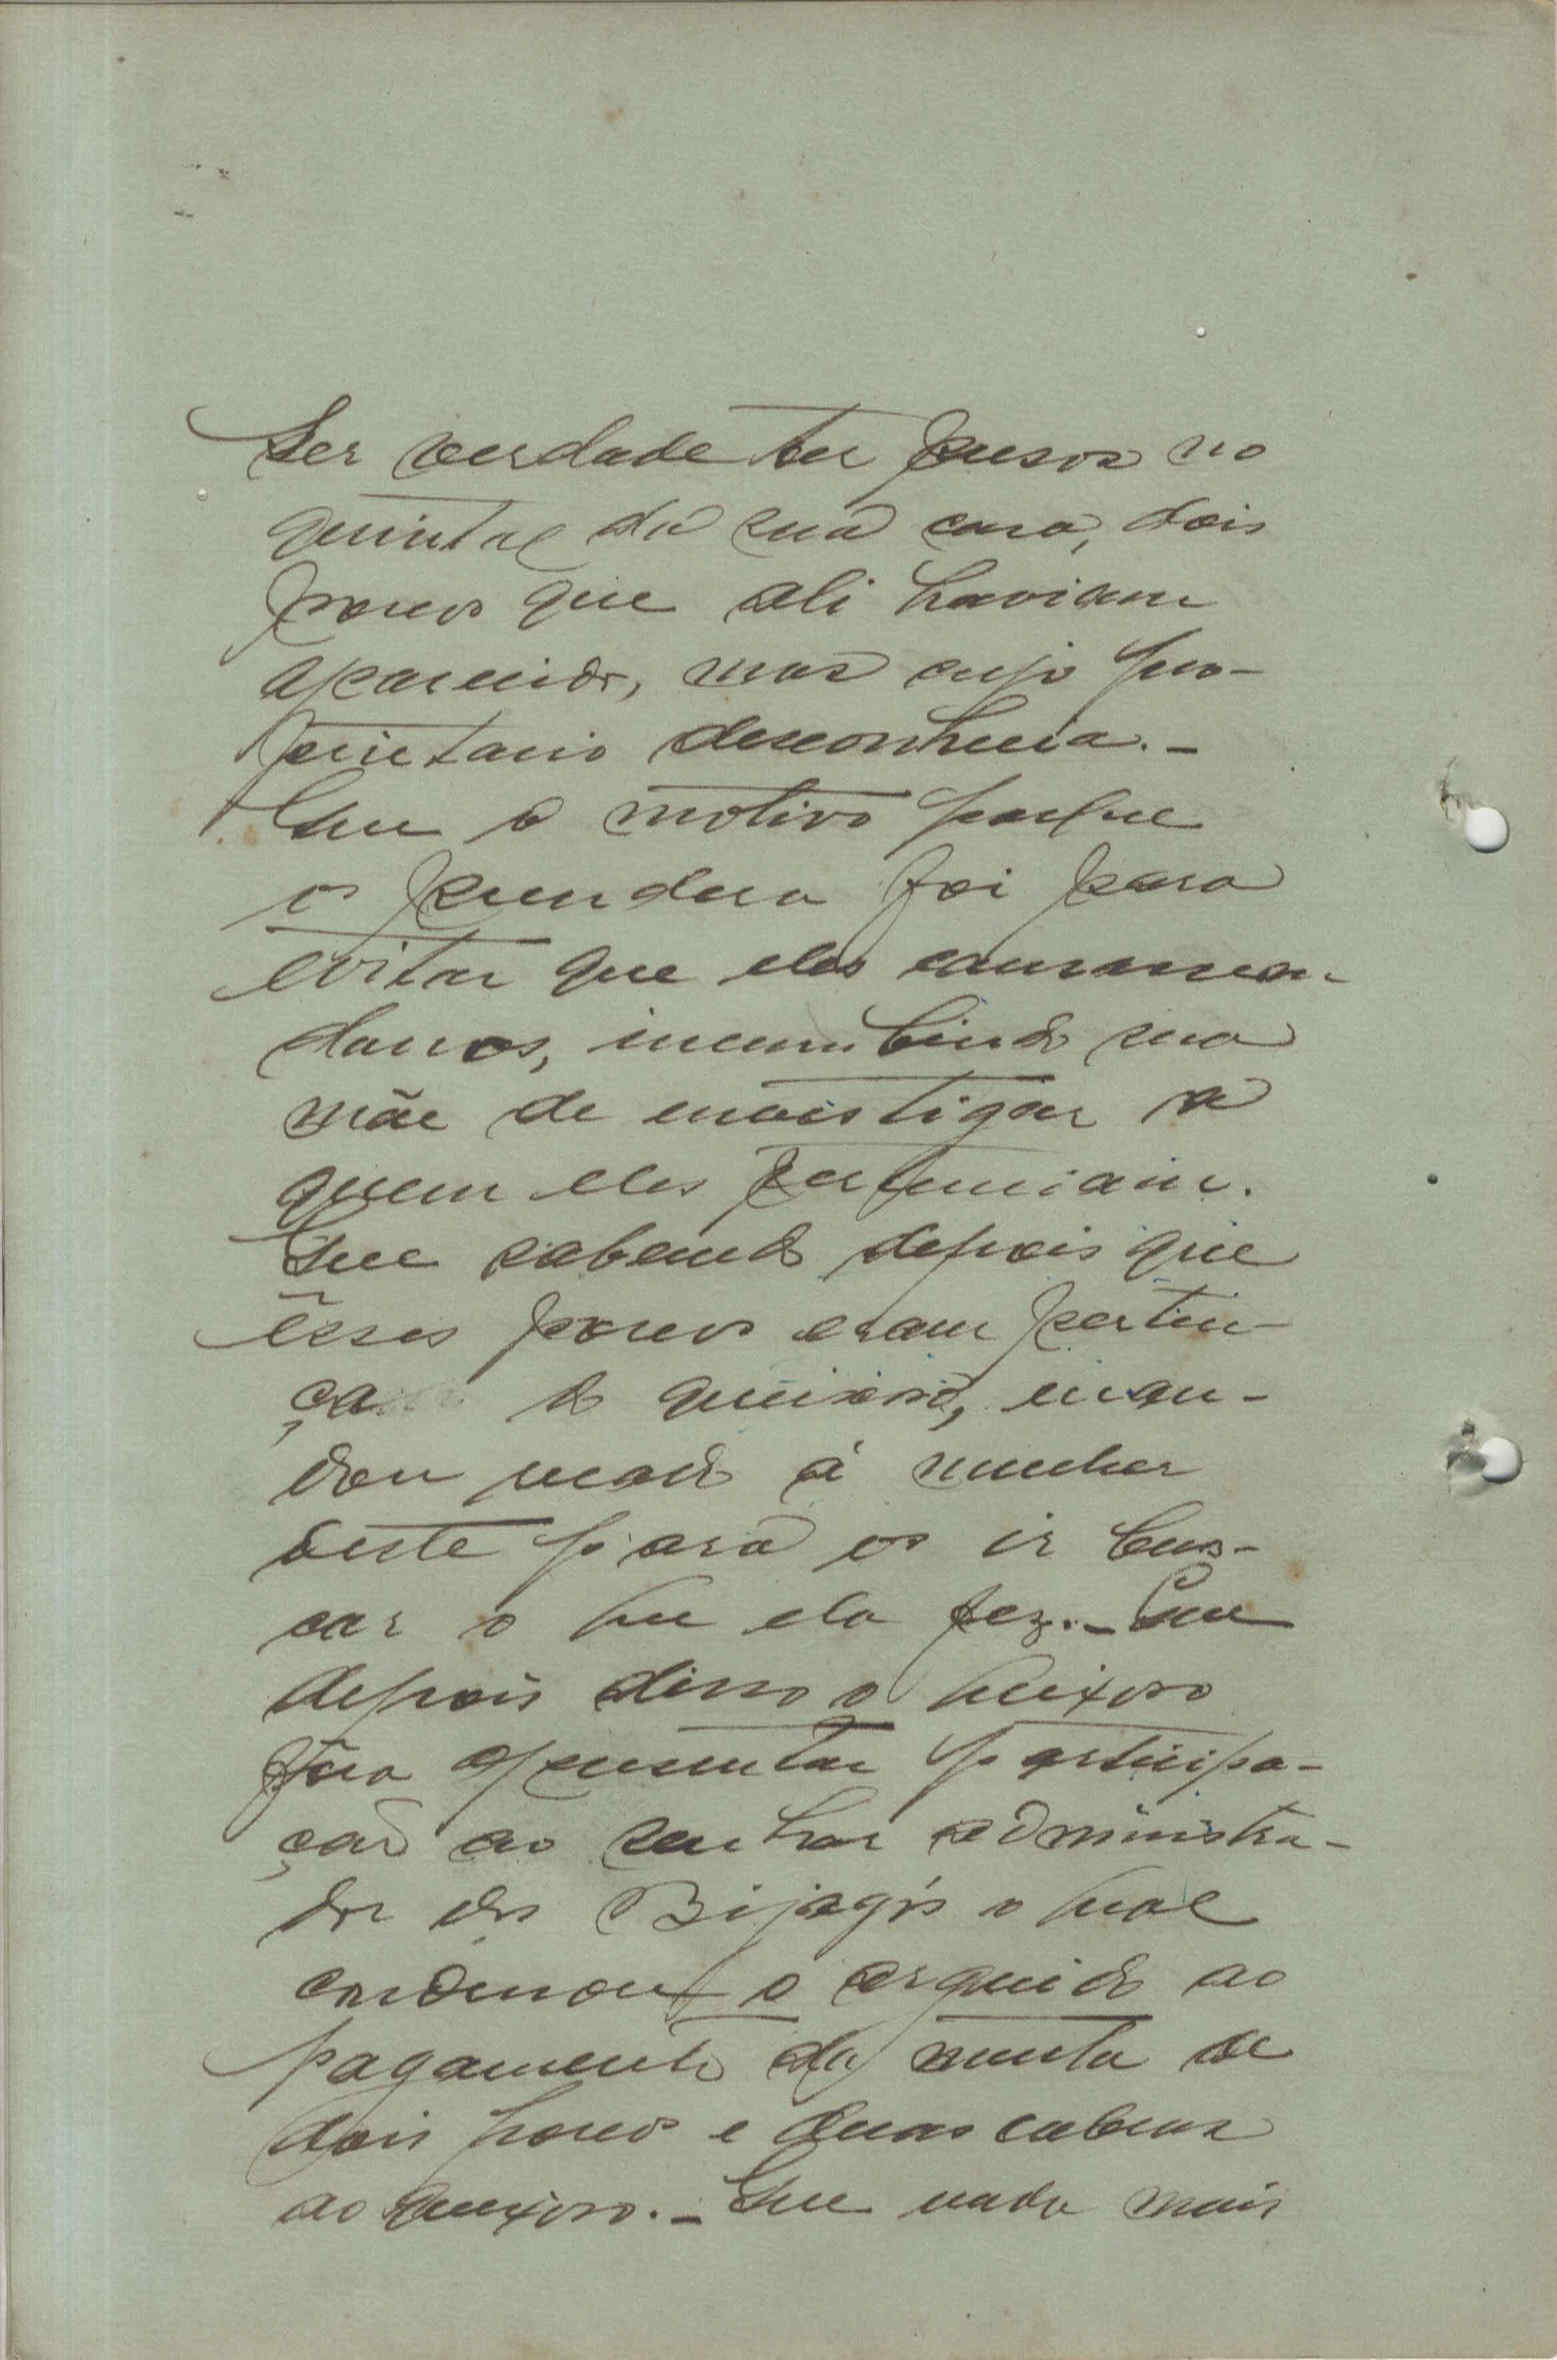 Ser verdade ter presos no
quintal da sua casa, dois
porcos que ali haviam
aparecido, mas cujo pro-
prietario desconhecia. -
Que o motivo porque
os prendera foi para
evitar que eles causassem
danos, incumbindo sua
mãe de envistigar a
quem eles pertenciam.
Que sabendo depois que
êsses porcos eram perten-
ça do queixoso, man-
dou recado á mulher
deste para os ir bus-
car o que ela fez. - Que
depois disso o queixoso
fôra apresentar participa-
ção ao senhor administra-
dor dos Bijagós o qual
condenou o arguido ao
pagamento da multa de
dois porcos e duas cabras
ao queixoso. - Que nada mais